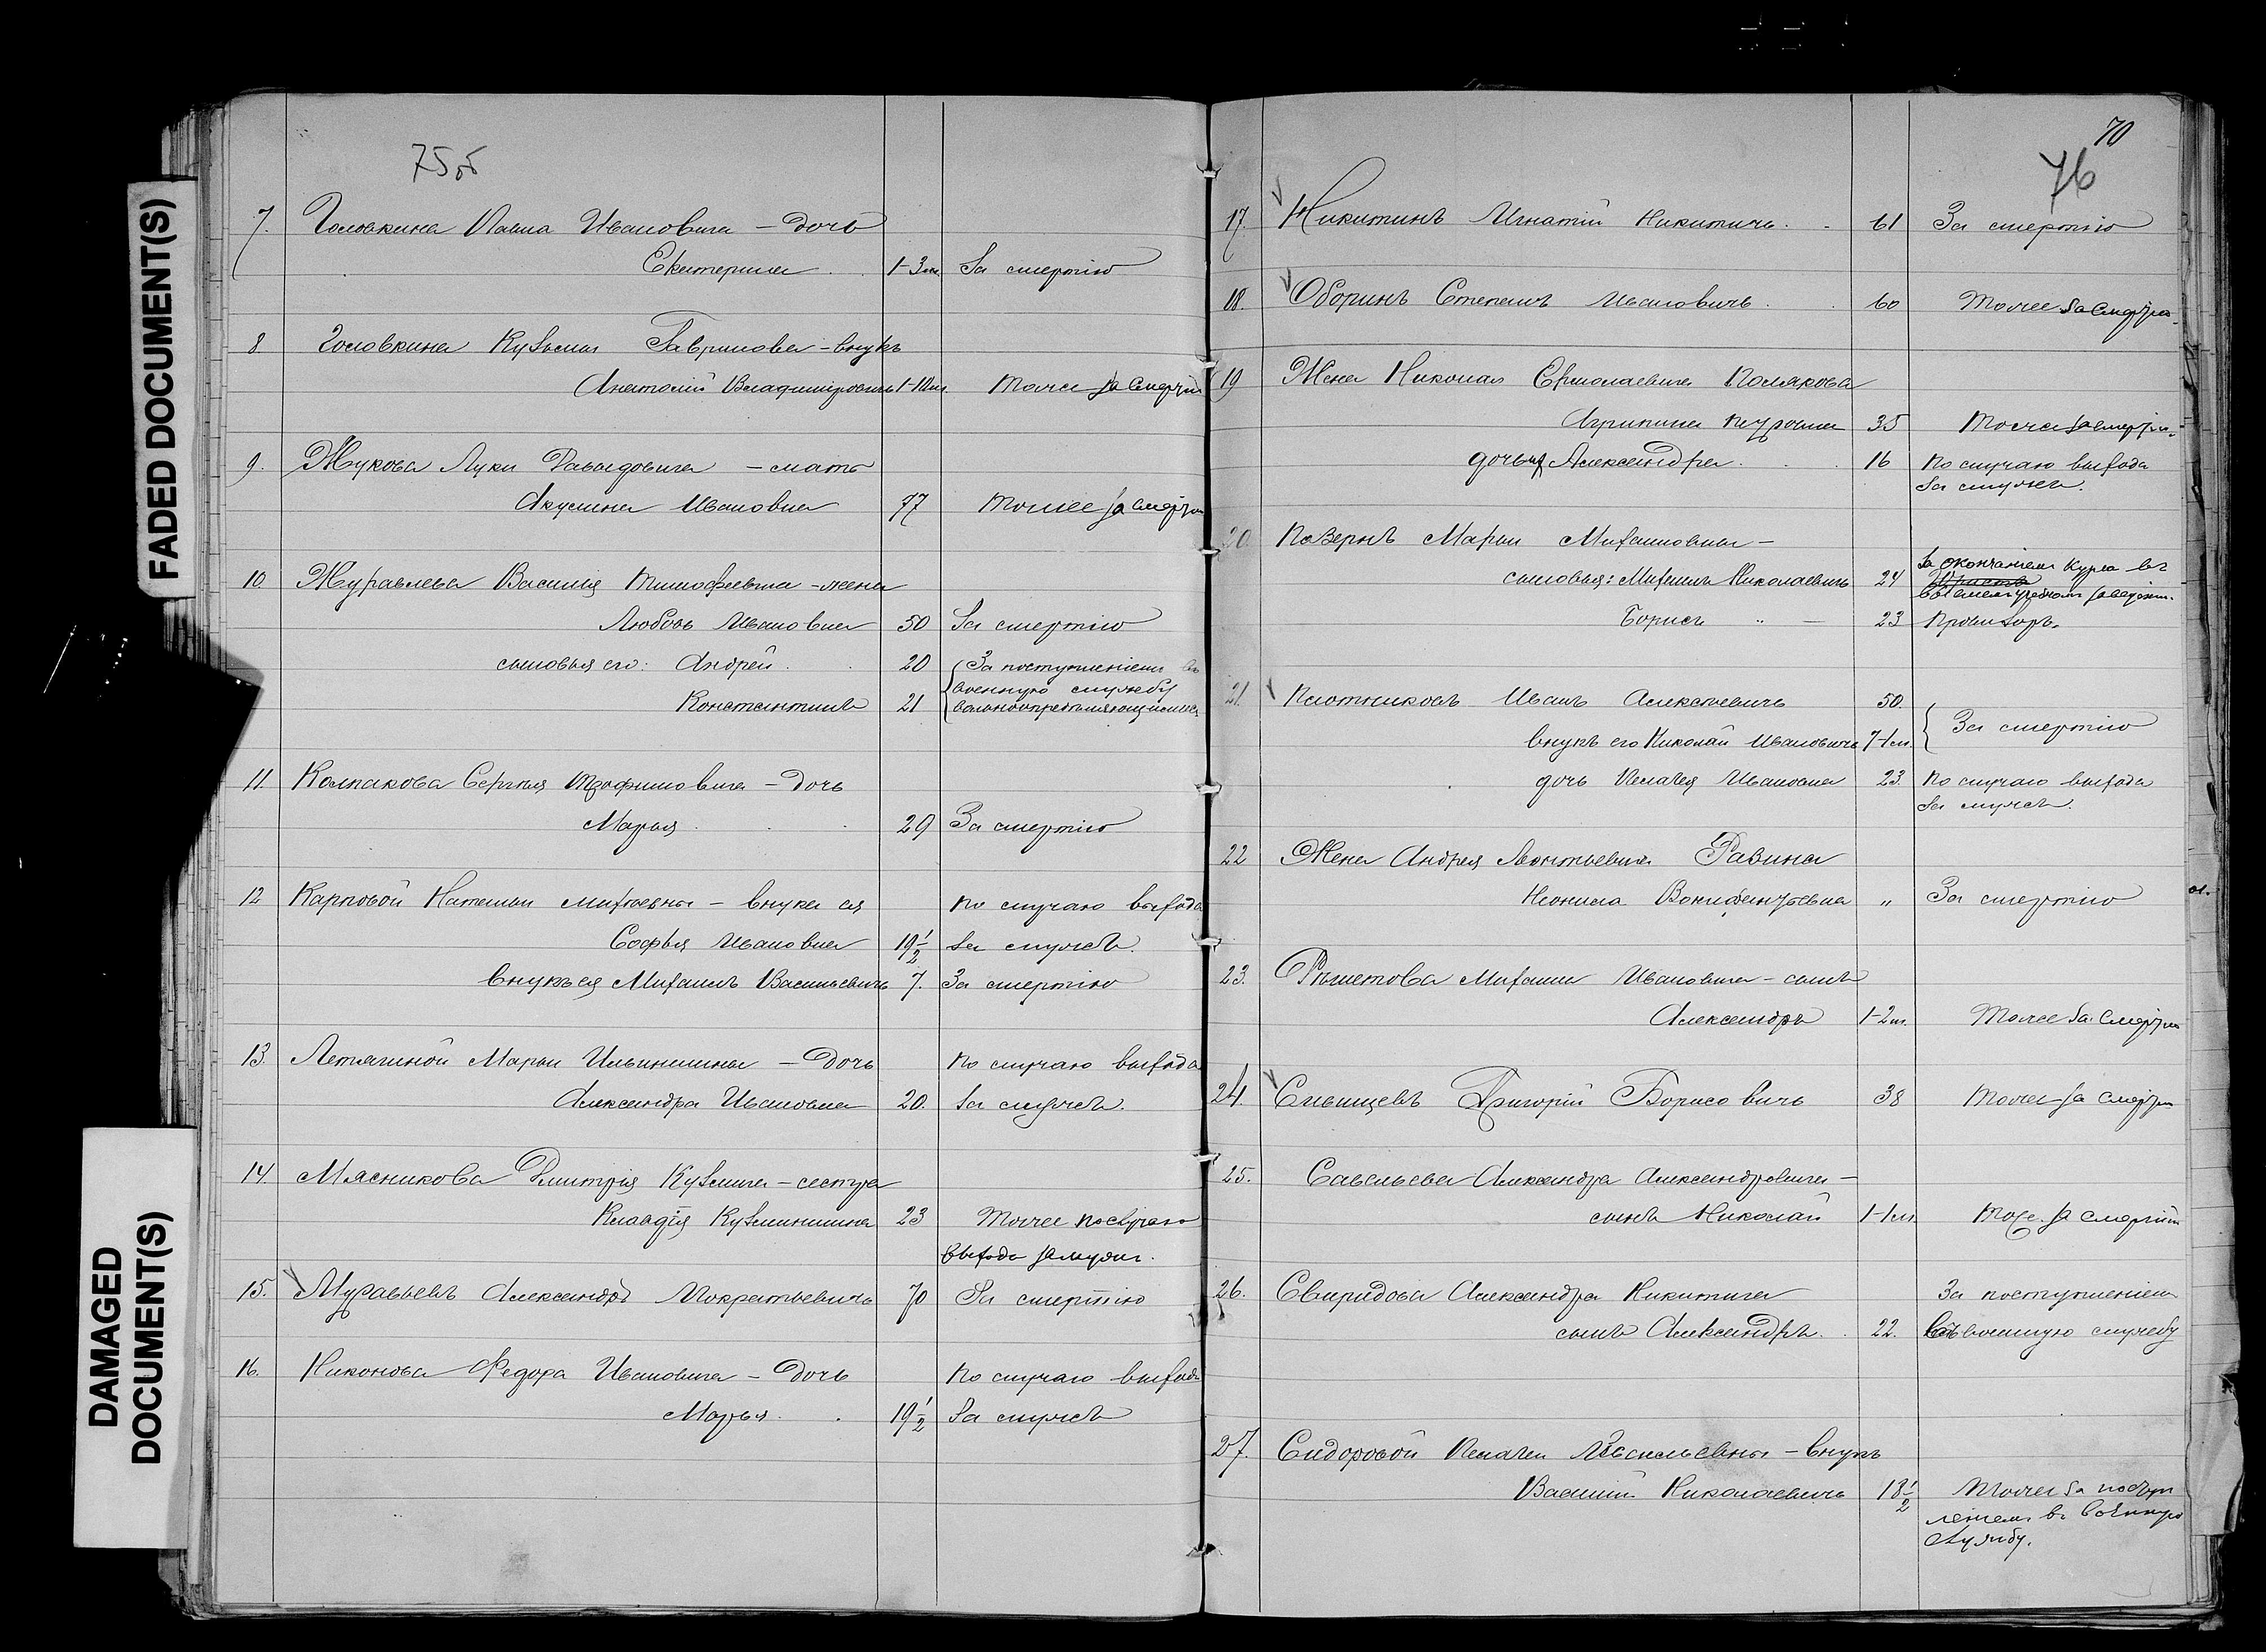 FADED DOCUMENT(S)
DAMAGED
DOCUMENT(S)
75об
7. Головкина Павла Ивановича – дочь
Екатерина . . 1-3 м. За смертію
8 Головкина Кузьмы Гаврилова – внукъ
Анатолій Владиміровичъ 1-10 м. Тоже за смертію
9. Жукова Луки Давыдовича – мать
Акулина Ивановна 77 Тоже за смертію
10. Журавлева Василія Тимофеевича – жена
Любовь Ивановна 50 За смертію
сыновья его: Андрей . . 20 За поступленіемъ въ
военную службу
Константинъ 21 вольноопредѣляющимися
11. Колпакова Сергѣя Трофимовича – дочь
Марья . . . 29 За смертію
12 Карповой Натальи Михѣевны – внука ея По случаю выхода
Софья Ивановна 19 1/2 за мужъ.
внукъ ея Михаилъ Васильевичъ 7. За смертію
13. Летягиной Марьи Ильинишны – дочь По случаю выхода
Александра Ивановна 20. за мужъ.
14. Мясникова Дмитрія Кузмича – сестра
Клавдія Кузминишна 23 Тоже по случаю
выхода замужъ.
15. Муравьевъ Александръ Иократьевичъ 70 За смертію
16. Никонова Федора Ивановича – дочь По случаю выхода
Марья . . 19 1/2 За мужъ
70
76
17. Никитинъ Игнатій Никитичъ . . 61 За смертію
18. Оборинъ Степанъ Ивановичъ . . 60 Тоже за смертію
19 Жена Николая Ермолаевича Полякова
Агрипина Петровна 35 Тоже за смертію.
дочь их Александра . . . 16 По случаю выхода
за мужъ.
20. Позернъ Марьи Михаиловны –
сыновья: Михаилъ Николаевичъ 24 За окончаніемъ курса въ
высшемъ учебномъ заведеніи.
Борисъ " – 23 Провизоръ.
21. Плотниковъ Иванъ Алексѣевичъ 50.
внукъ его Николай Ивановичъ 7-1 м. За смертію
дочь Пелагея Ивановна 23. По случаю выхода
за мужъ.
22 Жена Андрея Леонтьевича Равина
Неонила Вонифантьевна " За смертію
23. Рѣшетова Михаила Ивановича – сынъ
Александръ 1-2 м. Тоже за смертію
24. Сивищевъ Григорій Борисовичъ 38 Тоже за смертію
25. Савельева Александра Александровича –
сынъ Николай 1-1 м. Тоже за смертію
26. Свиридова Александра Никитича За поступленіемъ
сынъ Александръ . . 22. въ военную службу
27. Сидоровой Пелагеи Васильевны – внукъ
Василій Николаевичъ 18 1/2 Тоже за поступ
леніемъ въ военную
службу.